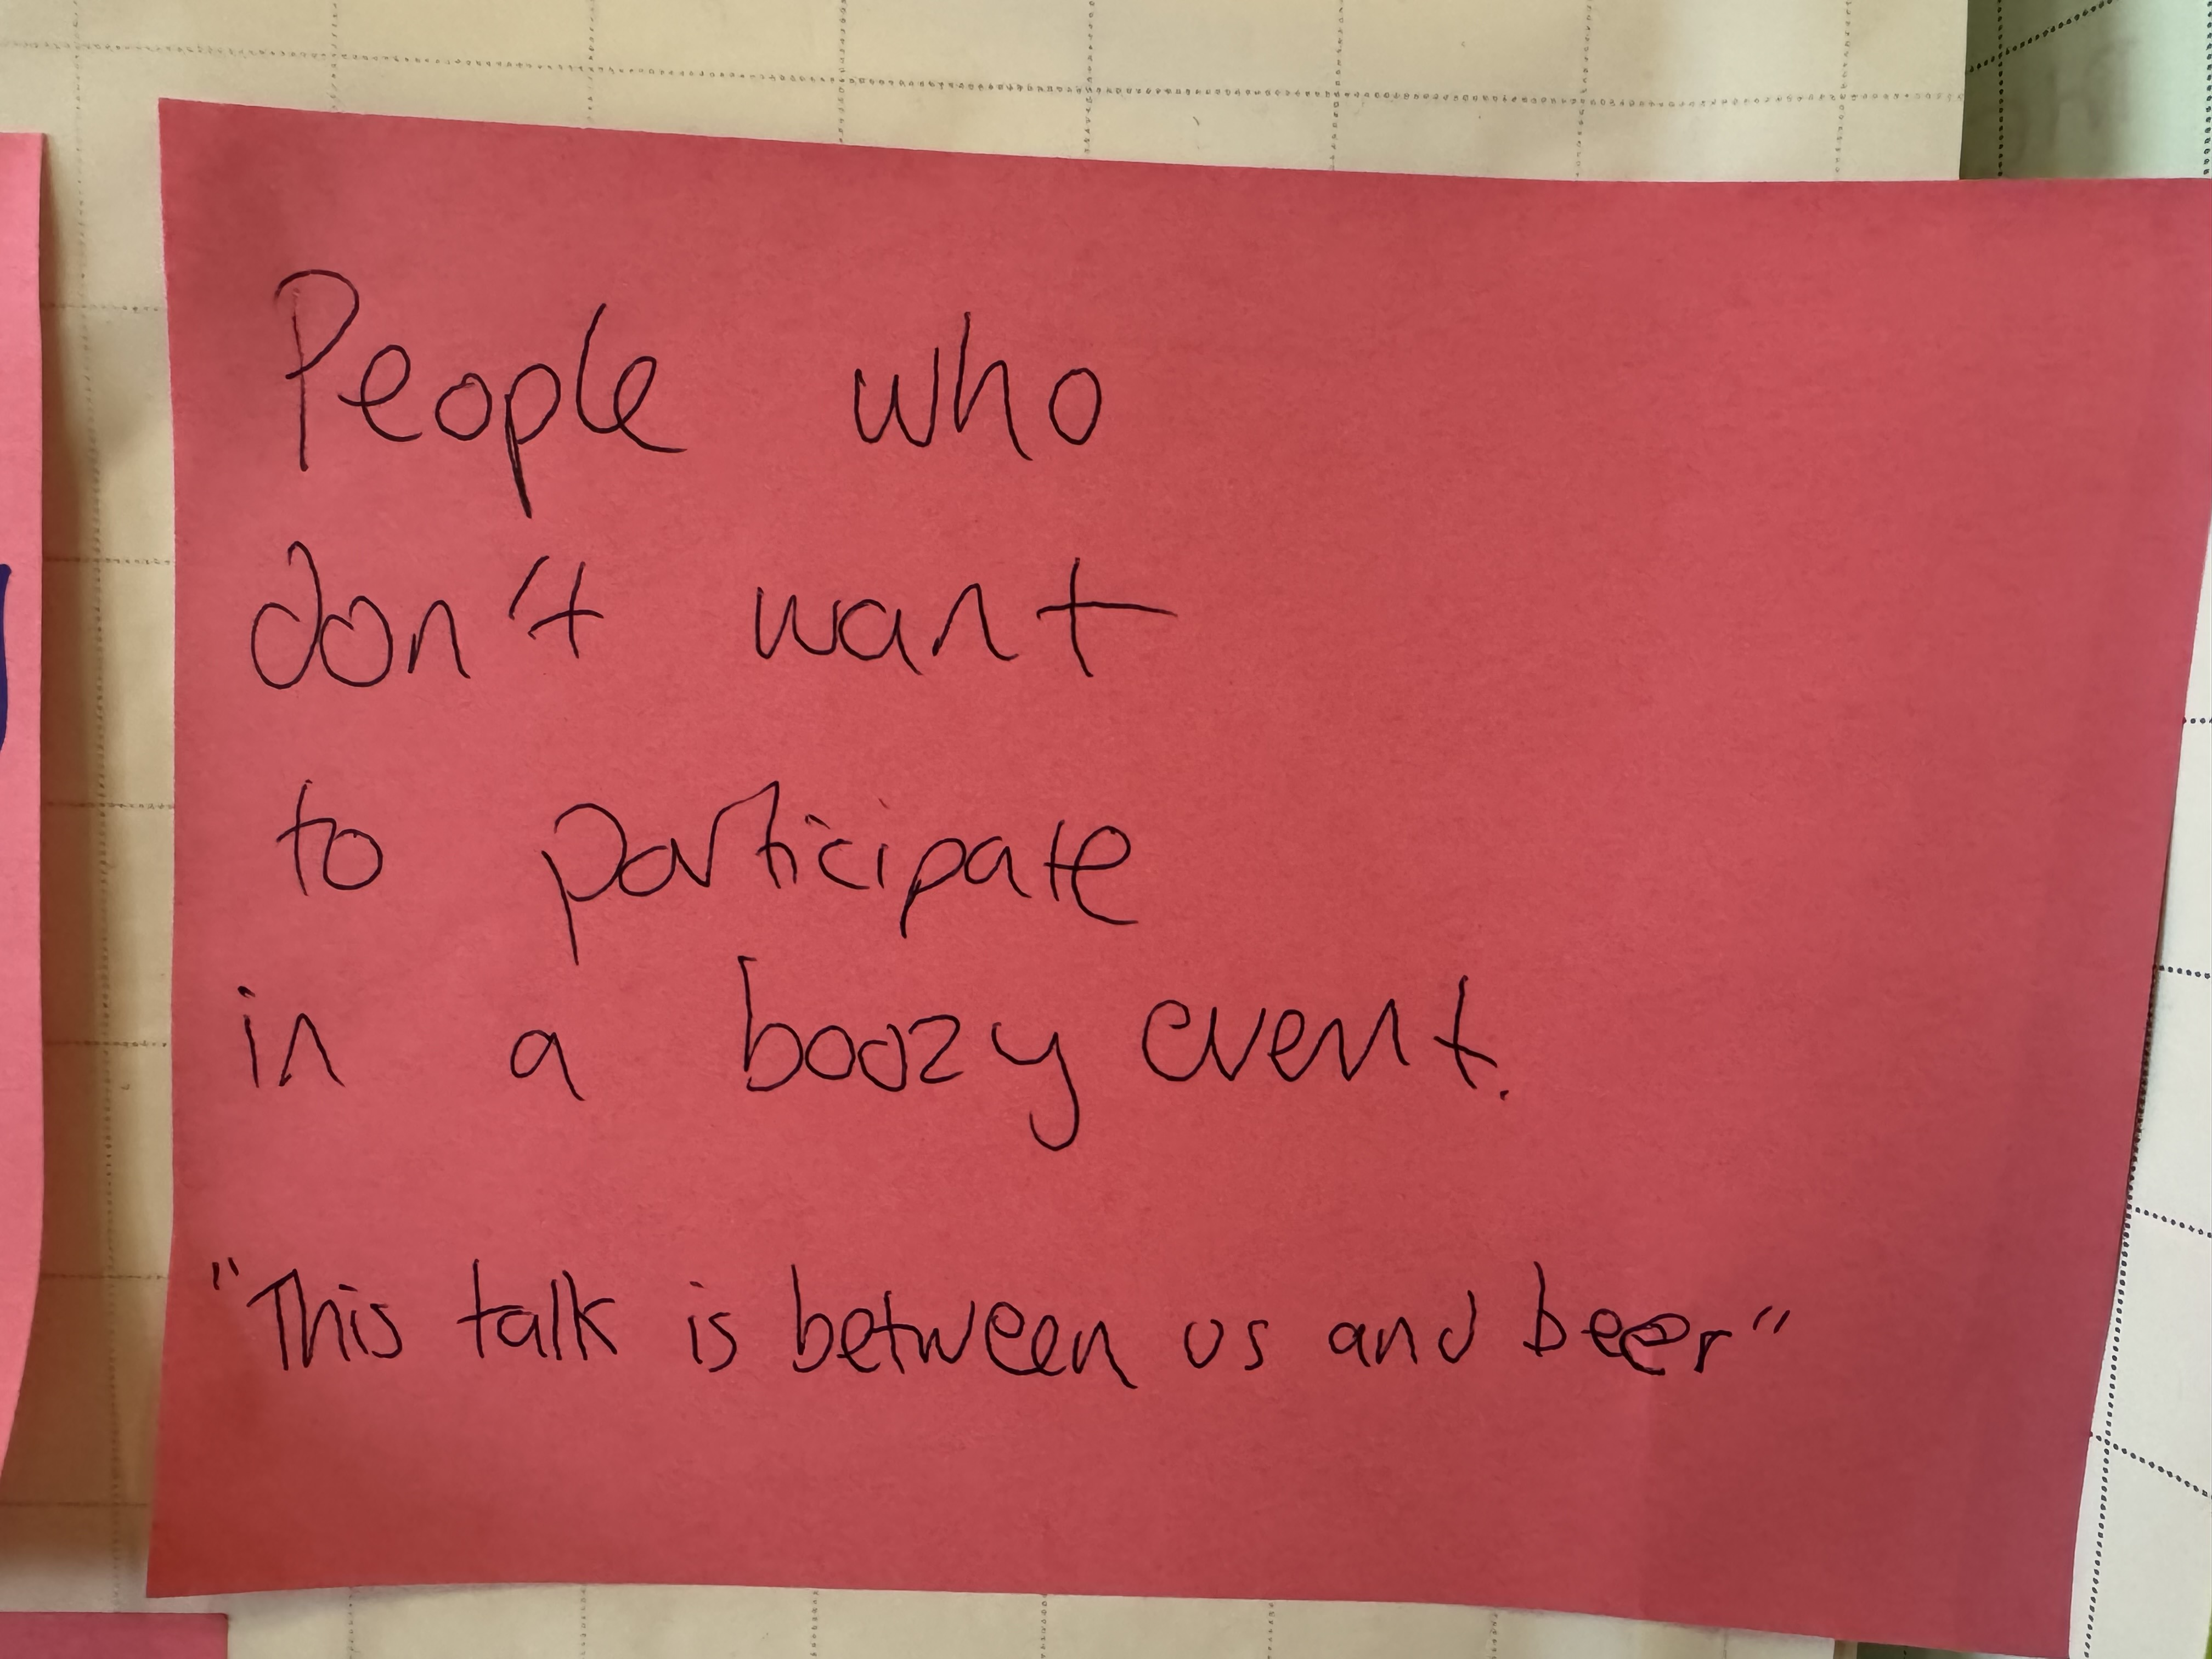 People who
don't want
to participate
in a boozy event.
"This talk is between us and beer"